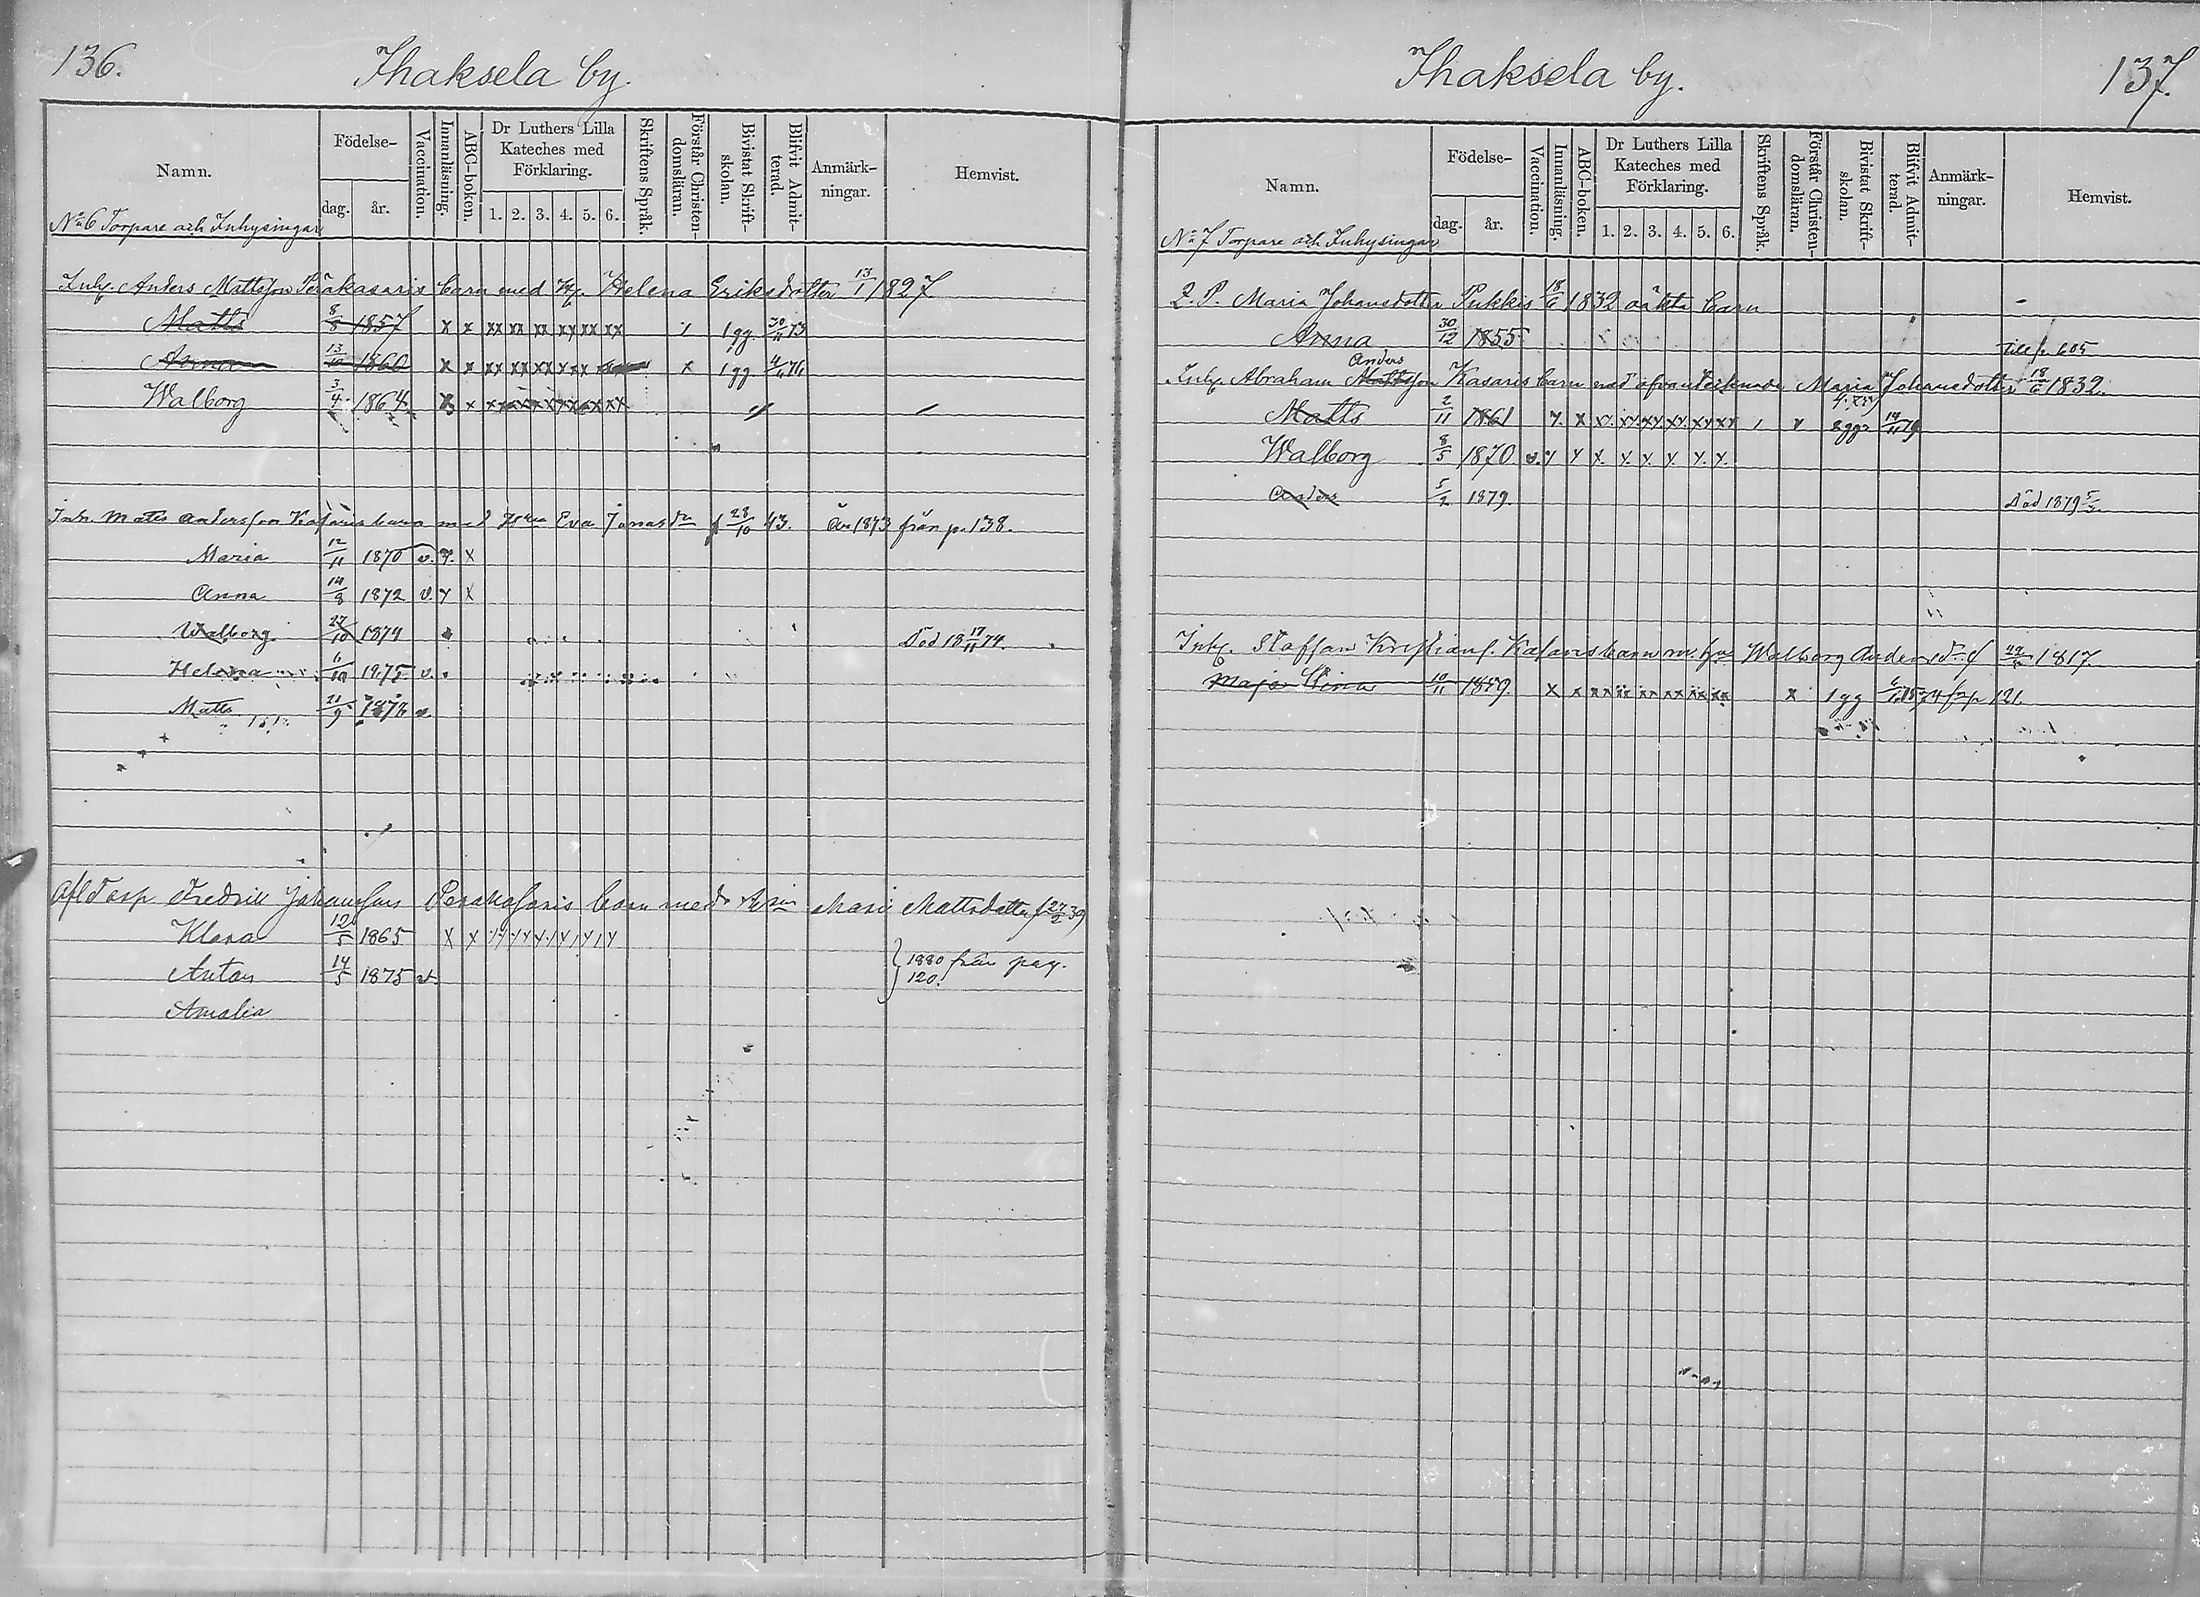 136.
Ihaksela by.
Namn.
Födelse-
dag.
år.
Vaccination.
Innanläsning.
ABC-boken.
Dr Luthers Lilla Kateches med Förklaring.
1. 2. 3. 4. 5. 6.
Skriftens Språk.
Förstår Christendomsläran.
Bivistat Skriftskolan.
Blifvit Admitterad.
Anmärkningar.
Hemvist.
No 6 Torpare och Inhysingar
Inh. Anders Mattsson Peräkasaris barn med H. Helena Eriksdotter 13/1 1827
Matts 8/8 1857 x x xx xx xx xx xx xx 1 gg. 30/11 73
Anna 13/10 1860 x x xx xx xx xx x 1 gg. 4/11 76
Walborg 3/4 1864
Inh. Matts Andersson Kasaris barn med Hu Eva Jonasdr f 28/10 43. år 1873 från p. 138.
Maria 12/11 1870 v. x. x
Anna 14/8 1872 v. x x
Walborg 27/10 1874 Död 18 17/11 74.
Helena 6/10 1875 v.
Matts 21/9 1878 v.
Afl Torp Fredrik Johansson Peräkasaris barn med Maria Mattsdotter f 27/2 39
Klara 12/5 1865 x x
Anton 14/5 1875 v.
Amalia
1880 från pag. 120.
Ihaksela by.
137.
Namn.
Födelse-
dag.
år.
Vaccination.
Innanläsning.
ABC-boken.
Dr Luthers Lilla Kateches med Förklaring.
1. 2. 3. 4. 5. 6.
Skriftens Språk.
Förstår Christendomsläran.
Bivistat Skriftskolan.
Blifvit Admitterad.
Anmärkningar.
Hemvist.
No 7 Torpare och Inhysingar
Q. P. Maria Johansdotter Pukkis 18/6 1832 oäkta barn
Anna 30/12 1855 till p. 605
Inh. Abraham Mattsson Anders Kasaris barn med ofvanteiknade Maria Johansdotter 18/6 1832.
Matts 2/11 1861 8 ggr 14/11 79
Walborg 8/5 1870 v.
Anders 5/2 1879. Död 1879
Inh. Staffan Kristians. Kasaris barn m. hu Walborg Andersdr f 1817.
Maja Stina 10/11 1859. x x x 1 gg 121.